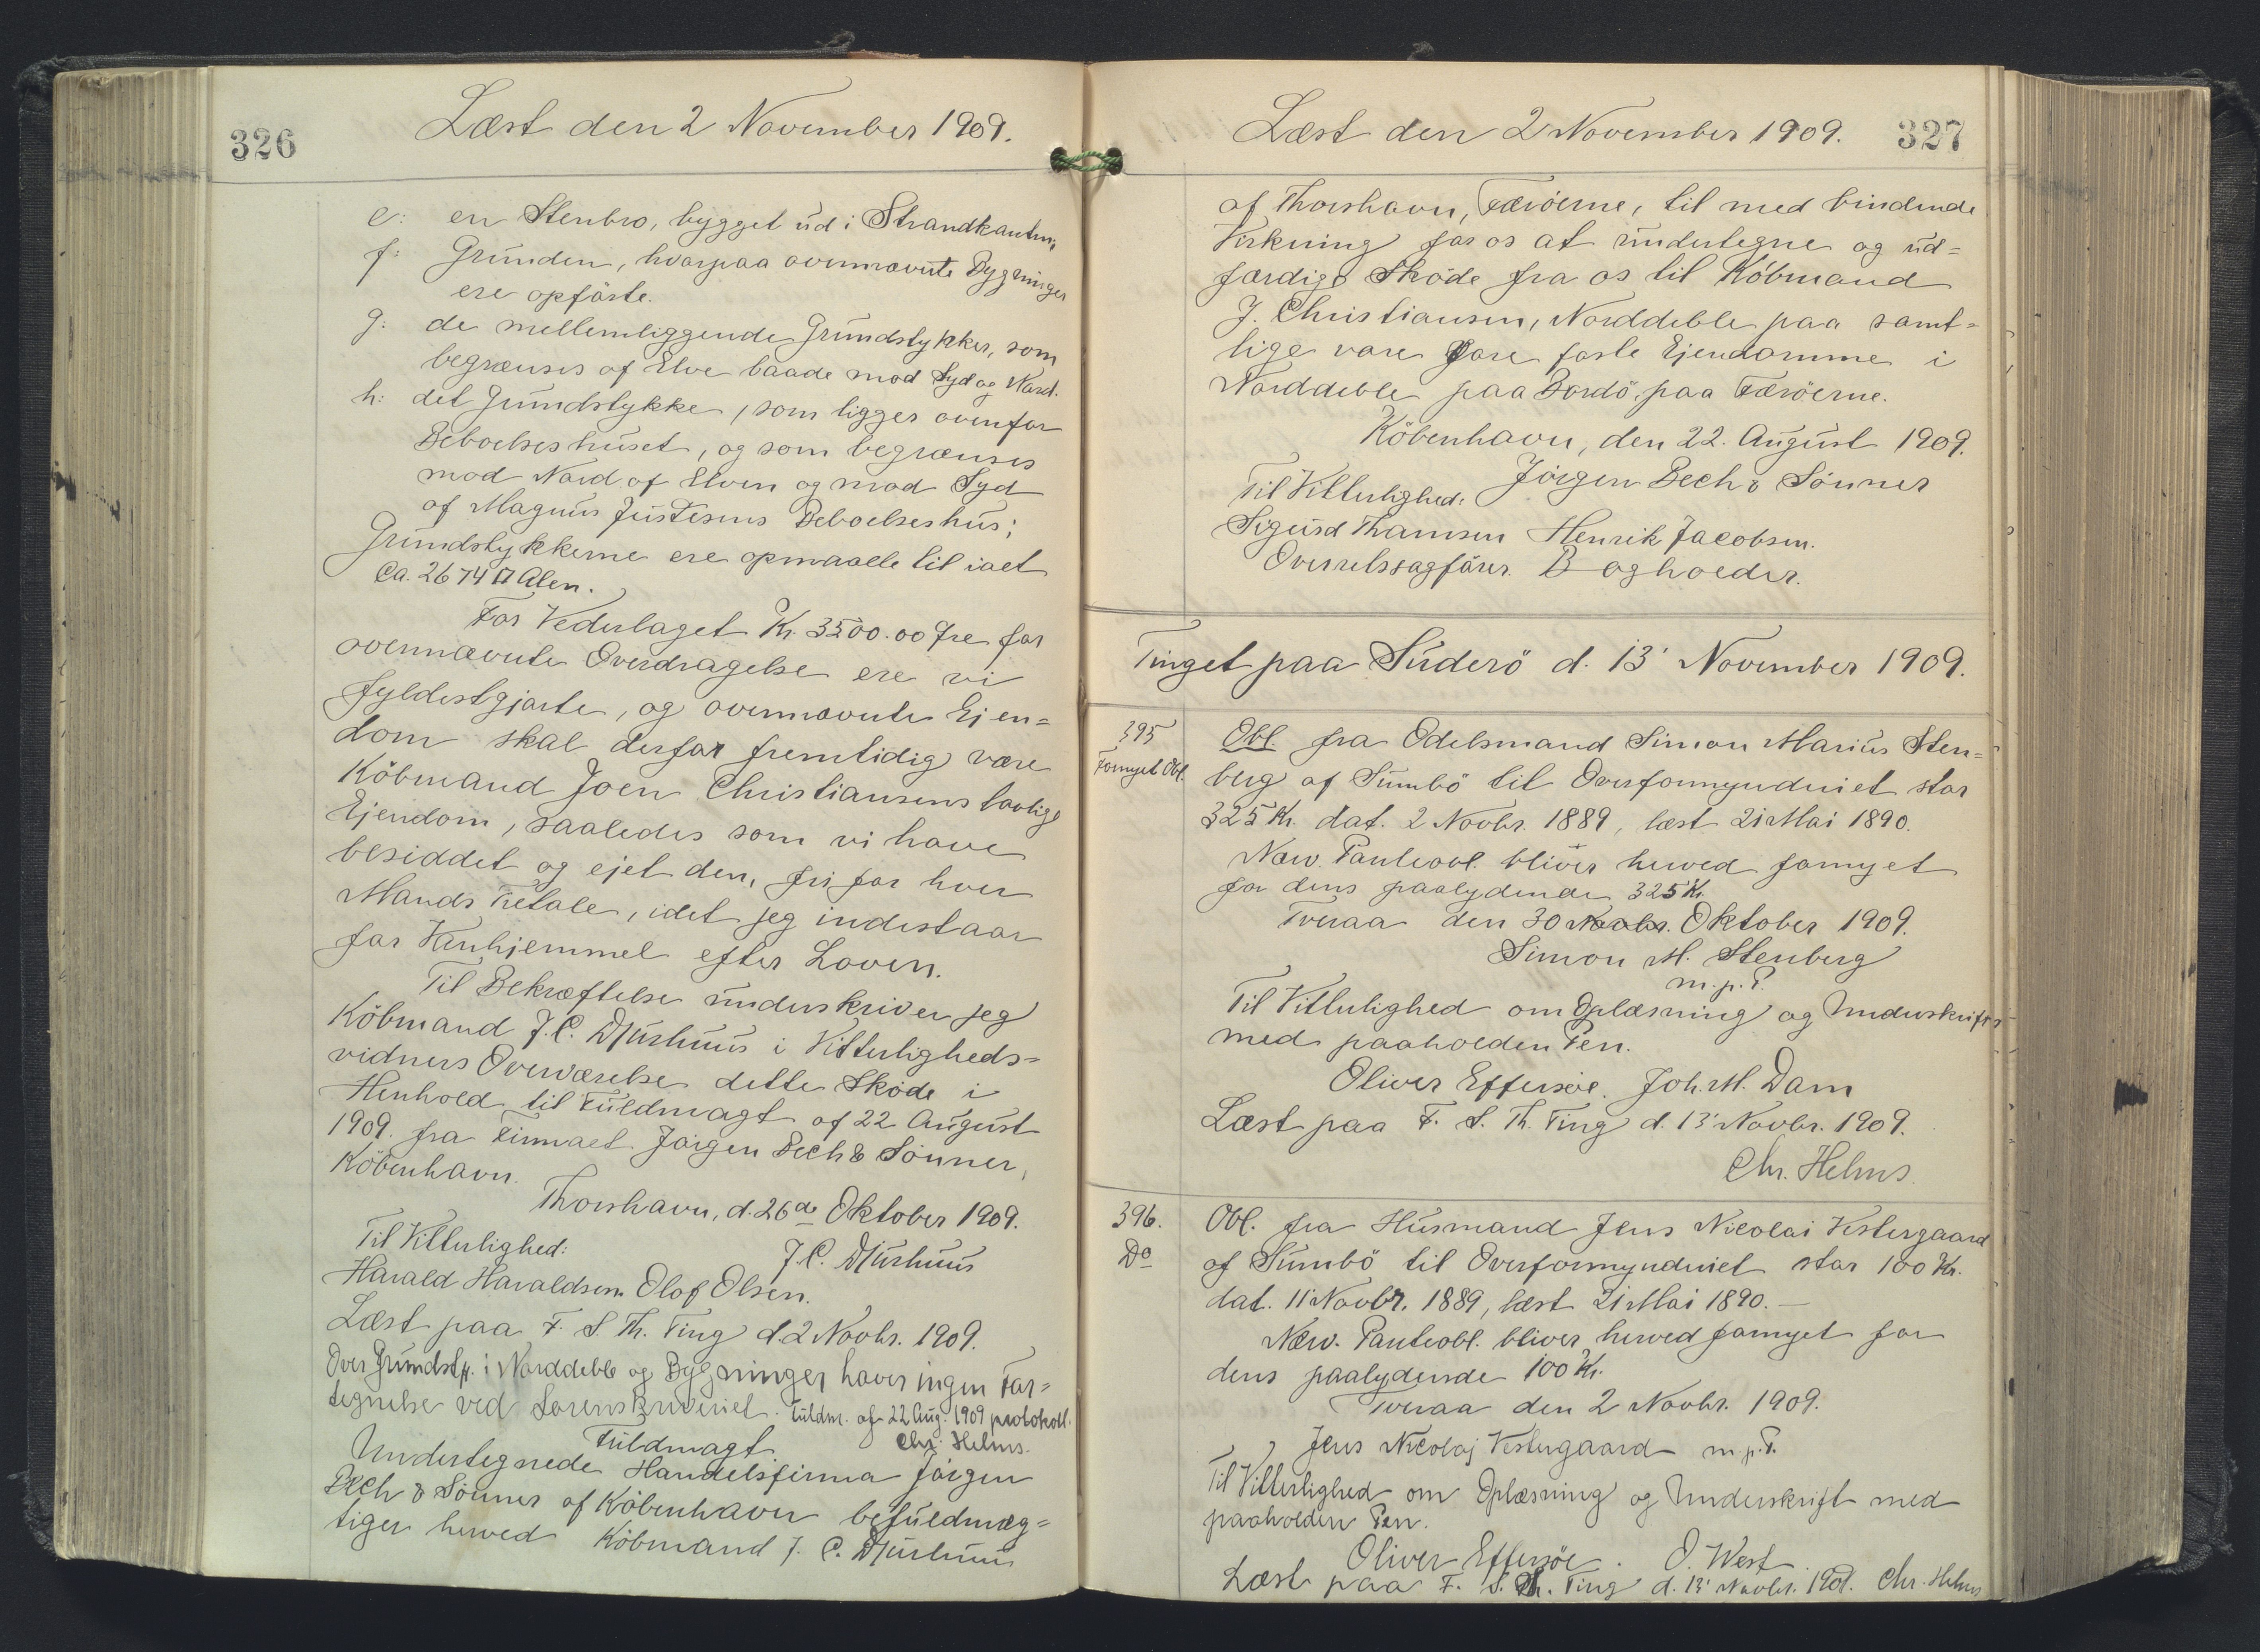 326
Læst den 2 November 1909.
e: en Stenbro, bygget ud i Strandkanten,
f: Grunden, hvorpaa ovennævnte Bygninger
ere opførte.
g: de mellemliggende Grundstykker, som
begrænses af Elve baade mod Syd og Nord.
h: det Grundstykke, som ligger ovenfor
Beboelseshuset, og som begrænses
mod Nord af Elven og mod Syd
af Magnus Justesens Beboelseshus;
Grundstykkerne ere opmaalte til ialt
Ca. 2674 □ Alen.
For Vederlaget Kr. 3500.00 Øre for
ovennævnte Overdragelse ere vi
fyldestgjorte, og ovennævnte Ejen=
dom skal derfor fremtidig være
Köbmand Joen Christiansens lovlige
Ejendom, saaledes som vi have
besiddet og ejet den, fri for hver
Mands Tiltale, idet jeg indestaar
for Vanhjemmel efter Loven.
Til Bekræftelse underskriver jeg
Köbmand J. C. Djurhuus i Vitterligheds=
vidners Overværelse dette Sköde i
Henhold til Fuldmagt af 22 August
1909 fra Firmaet Jörgen Bech & Sönner,
Köbenhavn.
Thorshavn, d. 26de Oktober 1909.
Til Vitterlighed: J. C. Djurhuus
Harald Haraldsen. Olof Olsen.
Læst paa F. S. Th. Ting d. 2 Novbr. 1909.
Over Grundst. i Norddeble og Bygninger haves ingen For=
tegnelse ved Sorenskriveriet. Fuldm. af 22 Aug. 1909 protokoll.
Chr. Helms.
Fuldmagt.
Undertegnede Handelsfirma Jörgen
Bech & Sönner af Köbenhavn befuldmæg=
tiger herved Köbmand J. C. Djurhuus
Læst den 2 November 1909. 327
af Thorshavn, Færöerne, til med bindende
Virkning for os at undertegne og ud=
færdige Sköde fra os til Köbmand
J. Christiansen, Norddeble paa samt=
lige vore faste Ejendomme i
Norddeble paa Bordö, paa Færöerne.
Köbenhavn, den 22. August 1909.
Jörgen Bech & Sönner
Til Vitterlighed:
Sigurd Thomsen Henrik Jacobsen.
Overretssagfører. Bogholder.
Tinget paa Suderö d. 13' November 1909.
395 Obl. fra Odelsmand Simon Marius Sten=
Fornyet Obl. berg af Sumbö til Overformynderiet stor
325 Kr. dat. 2 Novbr. 1889, læst 21 Mai 1890.
Næv. Panteobl. bliver herved fornyet
for dens paalydende 325 Kr.
Tveraa den 30 Novbr. Oktober 1909.
Simon M. Stenberg
m. p. P.
Til Vitterlighed om Oplæsning og Underskrift
med paaholden Pen.
Oliver Effersøe. Joh. M. Dam
Læst paa F. S. Th. Ting d. 13' Novbr. 1909.
Chr. Helms.
396. Obl. fra Husmand Jens Nicolai Vestergaard
Do af Sumbö til Overformynderiet stor 100 Kr.
dat. 11' Novbr. 1889, læst 21 Mai 1890. —
Næv. Panteobl. bliver herved fornyet for
dens paalydende 100 Kr.
Tveraa den 2 Novbr. 1909.
Jens Nicolaj Vestergaard m. p. P.
Til Vitterlighed om Oplæsning og Underskrift med
paaholden Pen.
Oliver Effersøe. O. West
Læst paa F. S. Th. Ting d. 13' Novbr. 1909. Chr. Helms